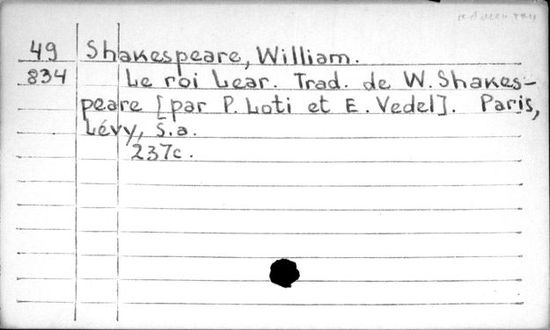 49 Shakespeare, William.
834 Le roi Lear. Trad. de W. Shakes-
peare [par P. Loti et E. Vedel]. Paris,
Lévy, s.a.
237c.